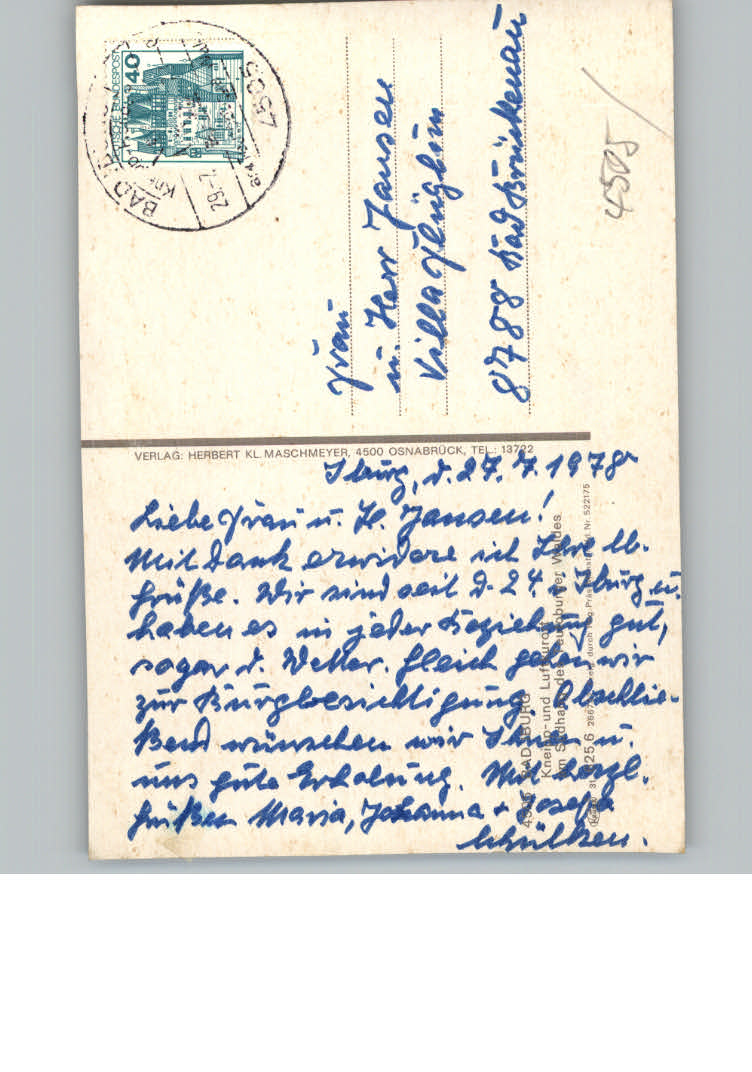 DEUTSCHE BUNDESPOST
40
BAD IBURG
4505
29.-7.
Frau
u. Herr Jansen
Villa
8788 Bad Brückenau
4505
VERLAG: HERBERT KL. MASCHMEYER, 4500 OSNABRÜCK, TEL.: 13722
Iburg, d. 27.7.1978
Liebe Frau u. H. Jansen!
Mit Dank erwidere ich Ihre lb.
Grüße. Wir sind seit d. 24. i. Iburg u.
haben es in jeder Beziehung gut,
sogar d. Wetter. Gleich gehen wir
zur Burgbesichtigung. Abschlie-
ßend wünschen wir Ihnen u.
uns gute Erholung. Mit herzl.
Grüßen Maria, Johanna + Josefa
Schülken.
4505 BAD IBURG
Kneipp- und Luftkurort
am Südhang des Teutoburger Waldes
Nr. 522175